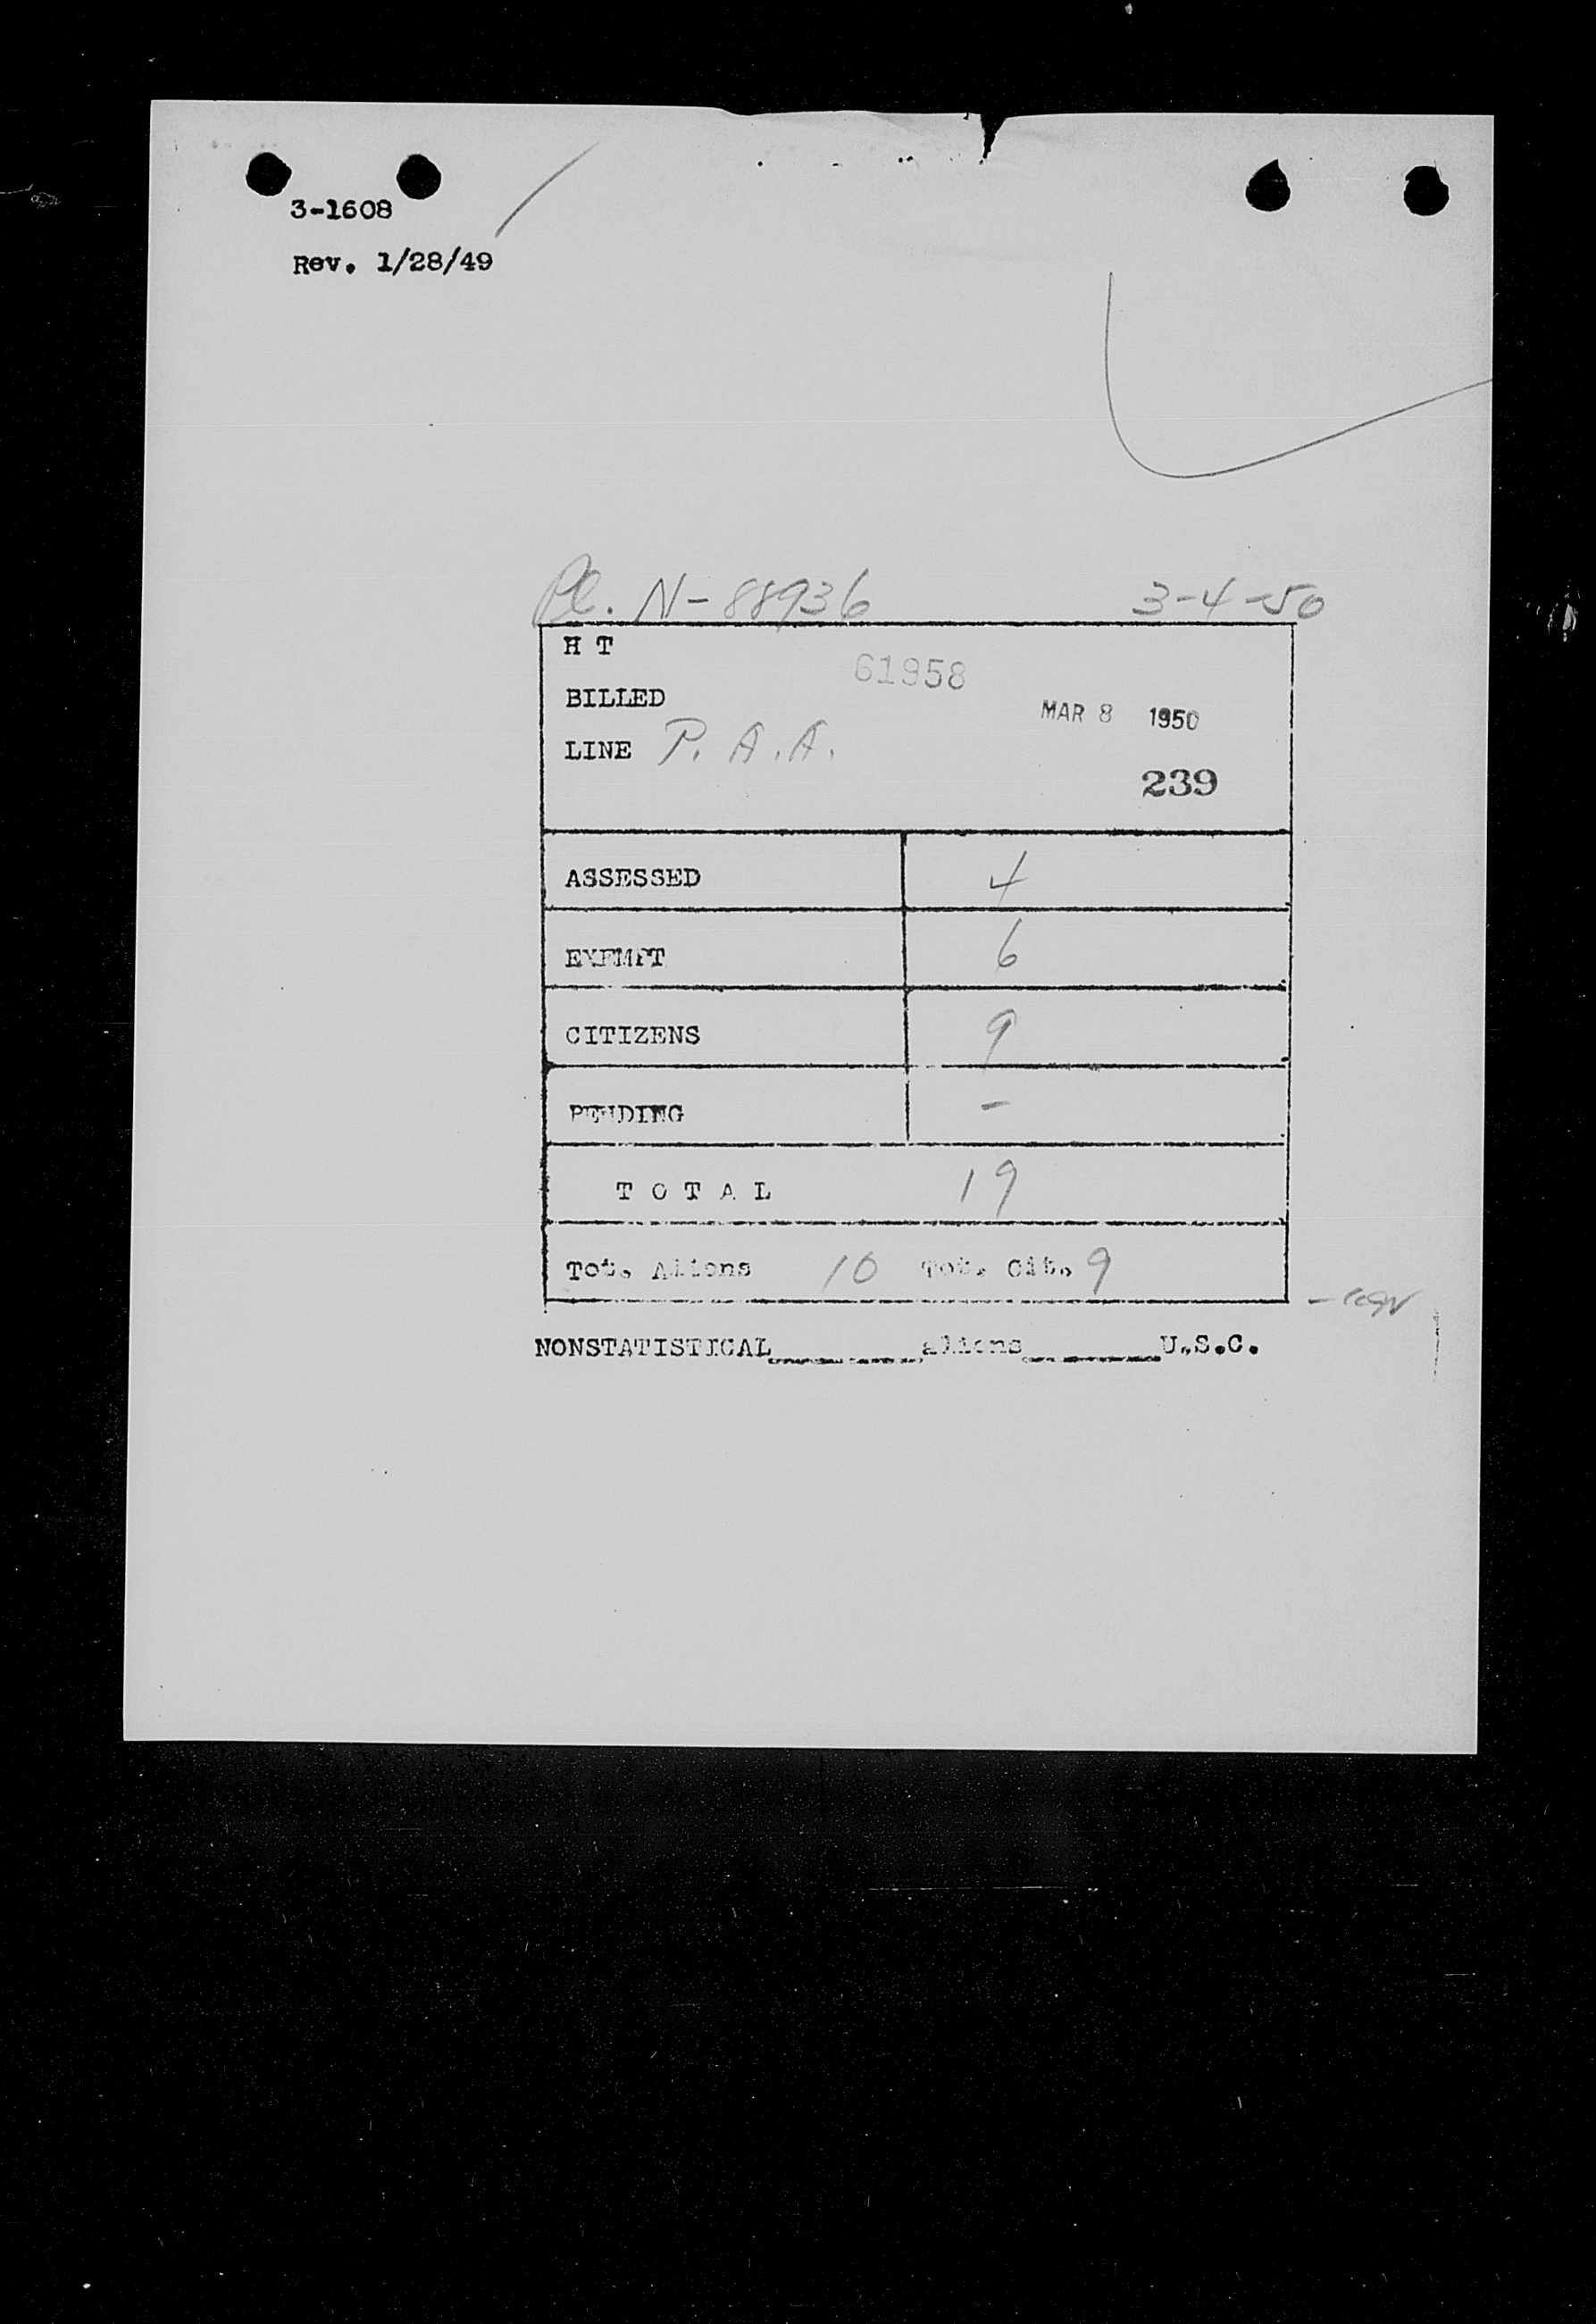 3-1608
Rev. 1/28/49
Pl. N-88936 3-4-50
H T
61958
BILLED
MAR 8 1950
LINE P. A. A.
239
ASSESSED 4
EXEMPT 6
CITIZENS 9
PENDING -
T O T A L 19
Tot. Aliens 10 Tot. Cit. 9
NONSTATISTICAL________aliens________U.S.C.